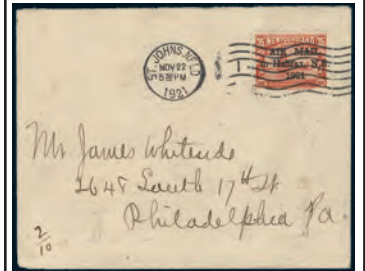 ST. JOHN'S, NF'LD
NOV 22
5-PM
1921
NEWFOUNDLAND
AIR MAIL
to Halifax, N.S.
1921
Mr James Whiteside
1648 South 17th St
Philadelphia Pa.
2
10